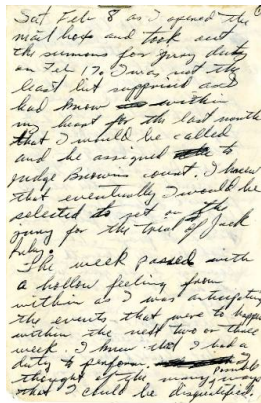 Sat Feb 8 as I opened the
mail box and took out
the summons for jury duty
on Feb 17. I was not the
least bit surprised as I
had know within
my heart for the last month
that I would be called
and be assigned to
Judge Browns court. I knew
that eventually I would be
selected to set on the
jury for the trial of Jack
Ruby.
The week passed with
a hollow feeling from
within as I was anticipating
the events that were to happen
within the next two or three
week. I knew that I had a
duty to perform
thought of the many possible ways
that I could be disqualified.